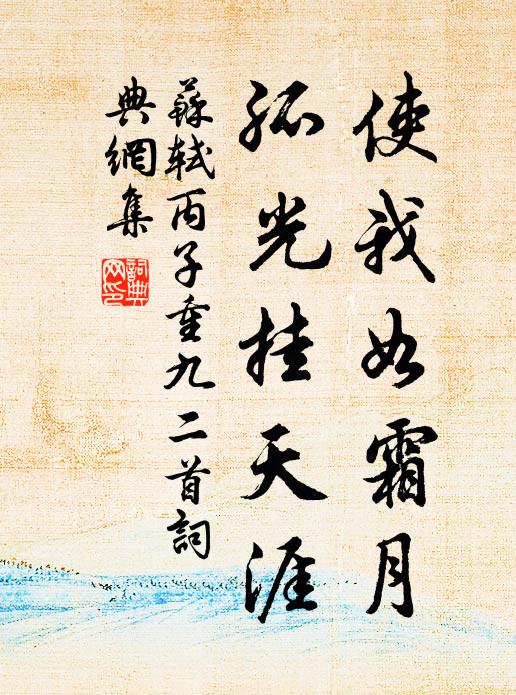 使我如霜月
孤光挂天涯
蘇軾丙子重九二首詞
典網集
詞典
网印